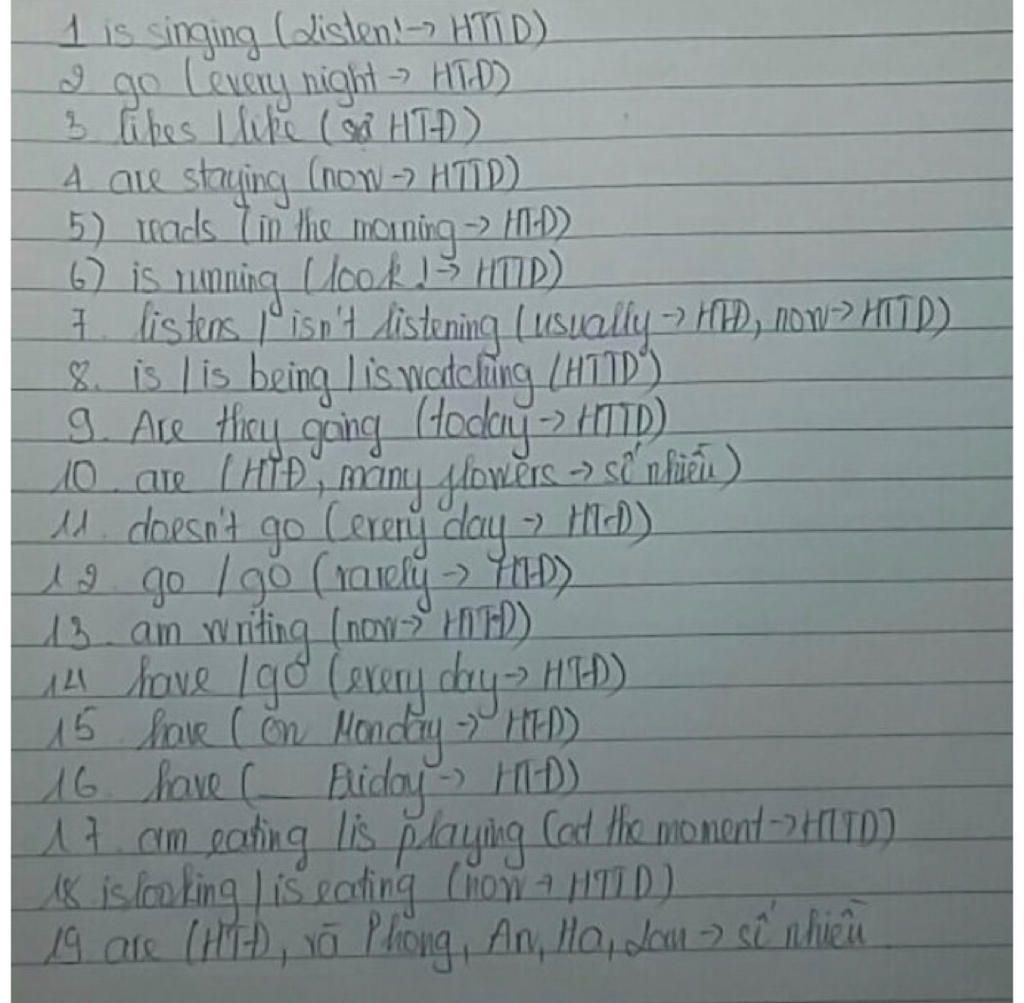 1 is singing (listen! -> HTTD)
2 go (every night -> HTĐ)
3. likes / like (sở HTĐ)
4 are staying (now -> HTTD)
5) reads (in the morning -> HTĐ)
6) is running (look! -> HTTD)
7. listens / isn't listening (usually -> HTĐ, now -> HTTD)
8. is / is being / is watching (HTTD)
9. Are they going (today -> HTTD)
10. are (HTĐ, many flowers -> số nhiều)
11. doesn't go (every day -> HTĐ)
12. go / go (rarely -> HTĐ)
13. am writing (now -> HTTD)
14 have / go (every day -> HTĐ)
15 have (on Monday -> HTĐ)
16. have (_ Friday -> HTĐ)
17 am eating / is playing (at the moment -> HTTD)
18 is looking / is eating (now -> HTTD)
19 are (HTĐ, Phong, An, Ha, Lan -> số nhiều